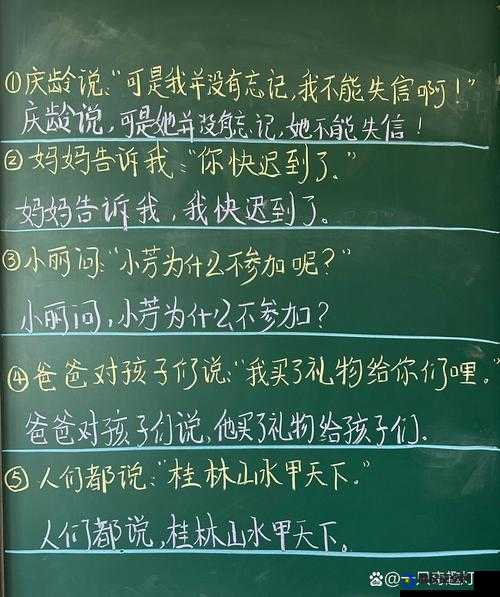 ①庆龄说:“可是我并没有忘记,我不能失信啊!”
庆龄说,可是她并没有忘记,她不能失信!
②妈妈告诉我:“你快迟到了。”
妈妈告诉我,我快迟到了。
③小丽问:“小芳为什么不参加呢?”
小丽问,小芳为什么不参加?
④爸爸对孩子们说:“我买了礼物给你们哩。”
爸爸对孩子们说,他买了礼物给孩子们.
⑤人们都说:“桂林山水甲天下。”
人们都说,桂林山水甲天下。